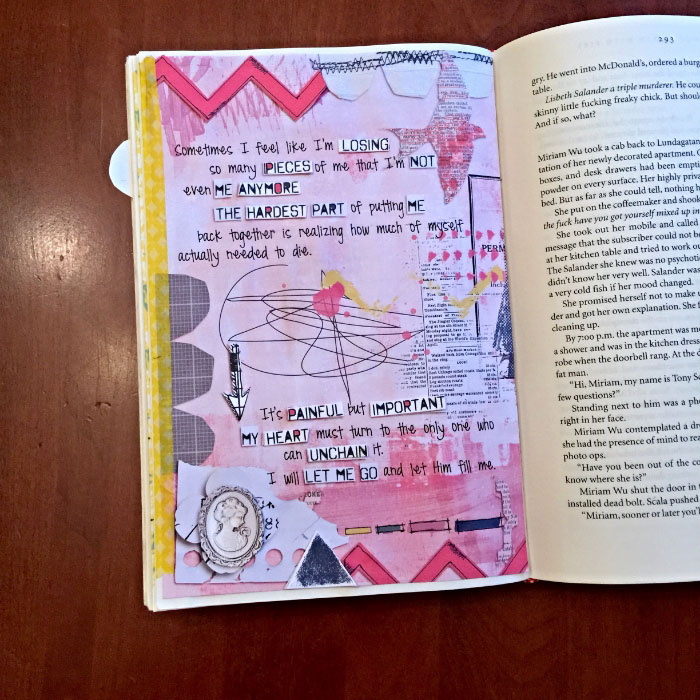 Sometimes I feel like I'm LOSING
so many PIECES of me that I'm NOT
even ME ANYMORE
THE HARDEST PART of putting ME
back together is realizing how much of myself
actually needed to die.
It's PAINFUL but IMPORTANT
MY HEART must turn to the only one who
can UNCHAIN it.
I will LET ME GO and let Him fill me.
PERM
293
gry. He went into McDonald's, ordered a burg
table.
Lisbeth Salander a triple murderer. He cou
skinny little fucking freaky chick. But shoul
And if so, what?
Miriam Wu took a cab back to Lundagatan
tation of her newly decorated apartment. C
boxes, and desk drawers had been empti
powder on every surface. Her highly priva
bed. But as far as she could tell, nothing h
She put on the coffeemaker and shook
the fuck have you got yourself mixed up in
She took out her mobile and called
message that the subscriber could not be
at her kitchen table and tried to work ou
The Salander she knew was no psychop
didn't know her very well. Salander was
a very cold fish if her mood changed.
She promised herself not to make u
der and got her own explanation. She f
cleaning up.
By 7:00 p.m. the apartment was
a shower and was in the kitchen dress
robe when the doorbell rang. At the
fat man.
"Hi, Miriam, my name is Tony Sc
few questions?"
Standing next to him was a pho
right in her face.
Miriam Wu contemplated a dr
she had the presence of mind to rea
photo ops.
"Have you been out of the co
know where she is?"
Miriam Wu shut the door in
installed dead bolt. Scala pushed
"Miriam, sooner or later you'l